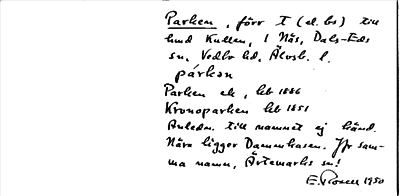 Parken, förr T (el. bs) till
hmd Kullen, 1 Näs, Dals-Eds
sn, Vedbo hd, Älvsb. l.
párkən
Parken ek, kb 1886
Kronoparken kb 1851
Anledn. till namnet ej känd.
Nära ligger Dammhasen. Jfr sam-
ma namn, Ärtemarks sn!
E. Rosell 1950